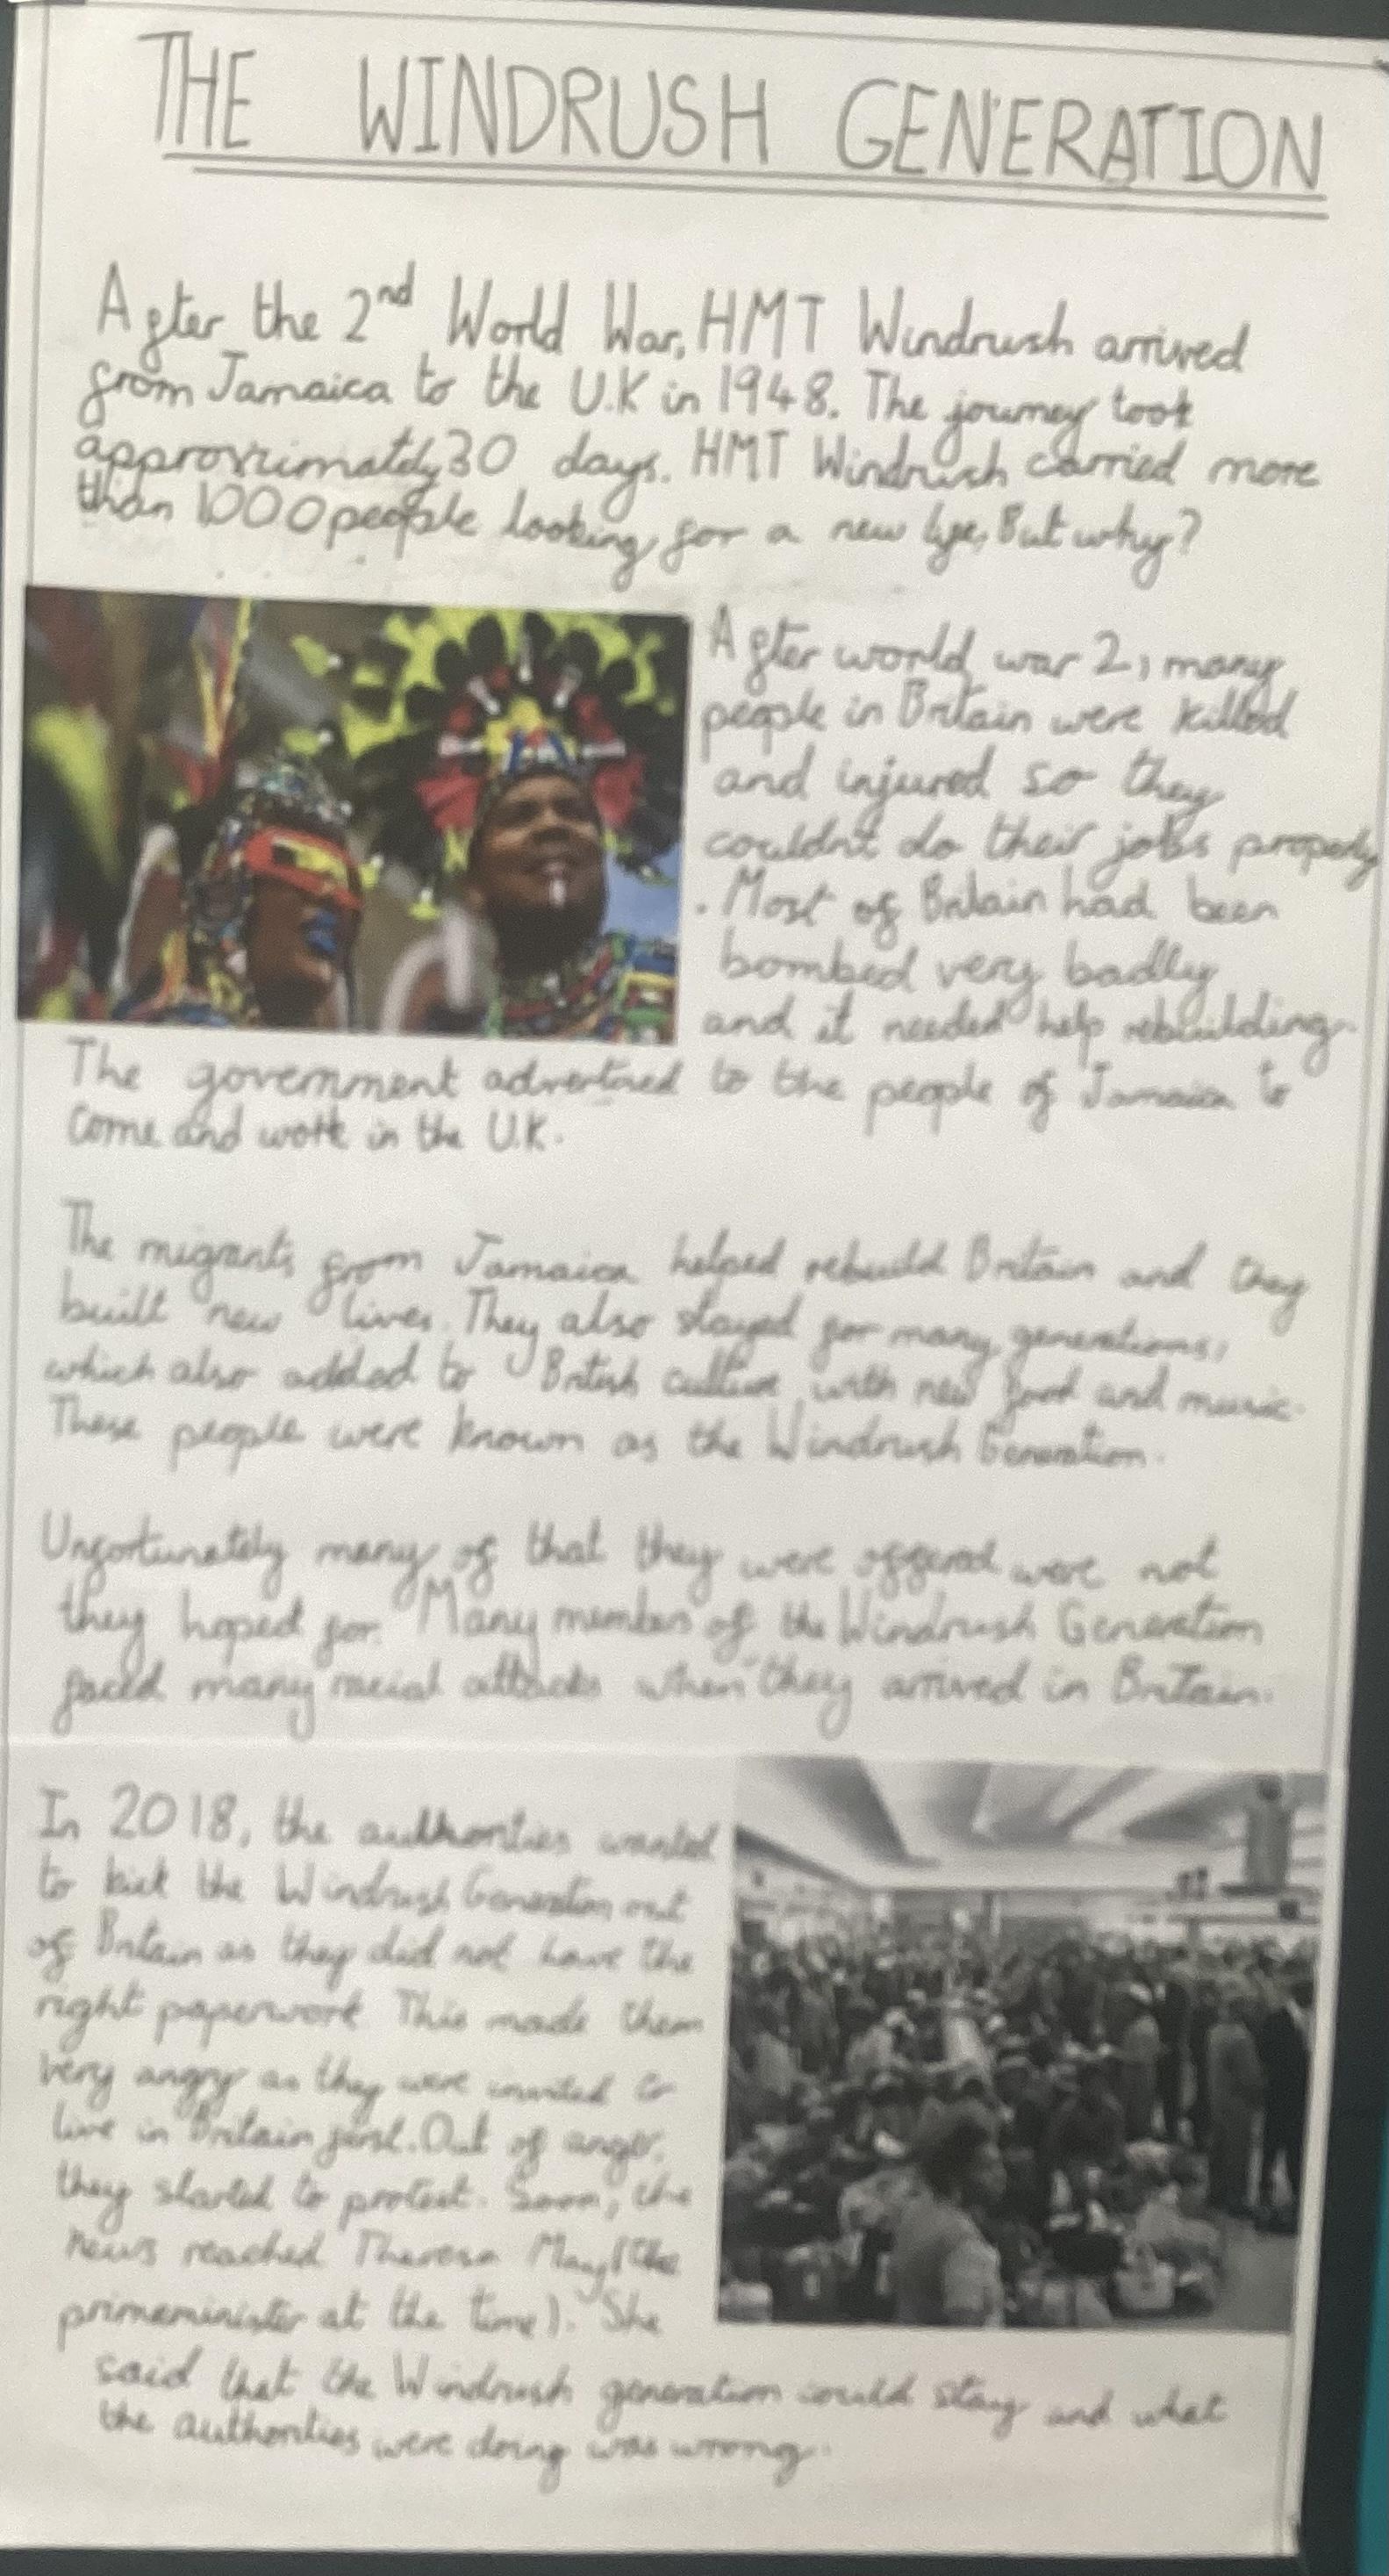 THE WINDRUSH GENERATION
After the 2nd World War, HMT Windrush arrived
from Jamaica to the U.K in 1948. The journey took
approximately 30 days. HMT Windrush carried more
than 1000 people looking for a new life. But why?
After world war 2, many
people in Britain were killed
and injured so they
couldn't do their jobs properly
. Most of Britain had been
bombed very badly
and it needed help rebuilding.
The government advertised to the people of Jamaica to
come and work in the U.K.
The migrants from Jamaica helped rebuild Britain and they
built new lives. They also stayed for many generations,
which also added to British culture with new food and music.
These people were known as the Windrush Generation.
Unfortunately many of that they were offered were not
they hoped for. Many members of the Windrush Generation
faced many racial attacks when they arrived in Britain.
In 2018, the authorities wanted
to kick the Windrush Generation out
of Britain as they did not have the
right paperwork. This made them
very angry as they were invited to
live in Britain first. Out of anger,
they started to protest. Soon, the
news reached Theresa May (the
primeminister at the time). She
said that the Windrush generation could stay and what
the authorities were doing was wrong.